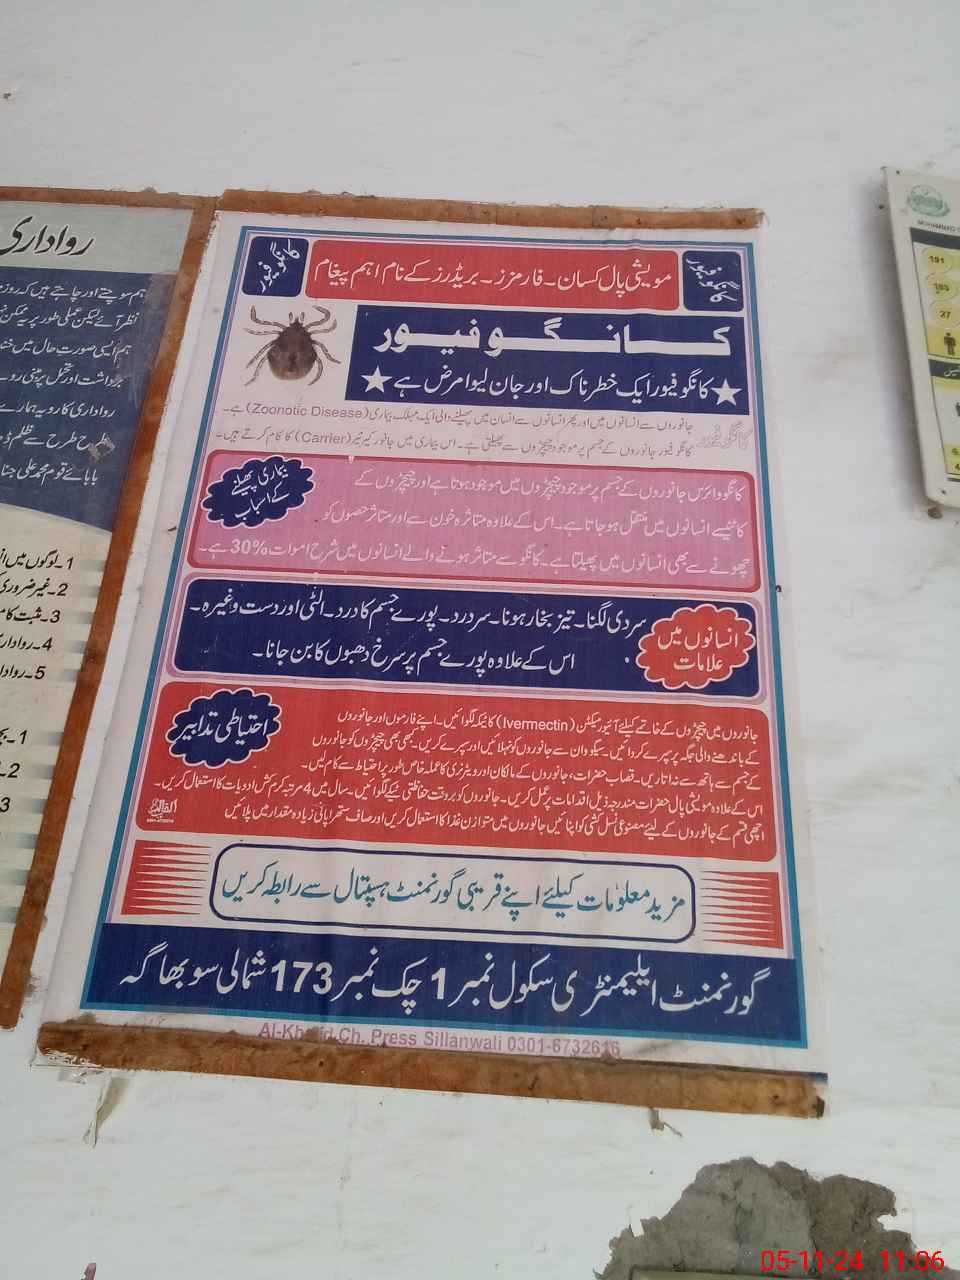 کانگو فیور
مویشی پال کسان۔ فارمرز۔ بریڈرز کے نام اہم پیغام
کانگو فیور
کانگو فیور
کانگو فیور ایک خطرناک اور جان لیوا مرض ہے
جانوروں سے انسانوں میں اور پھر انسانوں سے انسان میں پھیلنے والی ایک مہلک بیماری (Zoonotic Disease) ہے۔
کانگو فیور
کانگو فیور جانوروں کے جسم پر موجود چیچڑوں سے پھیلتی ہے۔ اس بیماری میں جانور کیرئیر (Carrier) کا کام کرتے ہیں۔
بیماری پھیلنے
کے اسباب
کانگو وائرس جانوروں کے جسم پر موجود چیچڑوں میں موجود ہوتا ہے اور چیچڑوں کے
کاٹنے سے انسانوں میں منتقل ہو جاتا ہے۔ اس کے علاوہ متاثرہ خون سے اور متاثر حصوں کو
چھونے سے بھی انسانوں میں پھیلتا ہے۔ کانگو سے متاثر ہونے والے انسانوں میں شرح اموات 30% ہے۔
انسانوں میں
علامات
سردی لگنا۔ تیز بخار ہونا۔ سر درد۔ پورے جسم کا درد۔ الٹی اور دست وغیرہ۔
اس کے علاوہ پورے جسم پر سرخ دھبوں کا بن جانا۔
احتیاطی تدابیر
جانوروں میں چیچڑوں کے خاتمے کیلئے آئیورمیکٹن (Ivermectin) کا ٹیکہ لگوائیں۔ اپنے فارموں اور جانوروں
کے باندھنے والی جگہ پر سپرے کروائیں۔ سیکوان سے جانوروں کو نہلائیں اور سپرے کریں۔ کبھی بھی چیچڑوں کو جانوروں
کے جسم سے ہاتھ سے نہ اتاریں۔ قصاب حضرات، جانوروں کے مالکان اور ویٹرنری کا عملہ خاص طور پر احتیاط سے کام لیں۔
اس کے علاوہ مویشی پال حضرات مندرجہ ذیل اقدامات پر عمل کریں۔ جانوروں کو بروقت حفاظتی ٹیکے لگوائیں۔ سال میں 4 مرتبہ کرم کش ادویات کا استعمال کریں۔
اچھی قسم کے جانوروں کے لیئے مصنوعی نسل کشی کو اپنائیں جانوروں میں متوازن غذا کا استعمال کریں اور صاف ستھرا پانی زیادہ مقدار میں پلائیں
مزید معلومات کیلئے اپنے قریبی گورنمنٹ ہسپتال سے رابطہ کریں
گورنمنٹ ایلیمنٹری سکول نمبر 1 چک نمبر 173 شمالی سوبھاگہ
Al-Khalid Ch. Press Sillanwali 0301-6732616
رواداری
ہم سوچتے اور چاہتے ہیں کہ روزم
نظر آئے لیکن عملی طور پر یہ ممکن
ہم ایسی صورت حال میں
برداشت اور تحمل پر مبنی رو
رواداری کا رویہ ہمارے
طرح طرح سے ظلم
بابائے قوم محمد علی جنا
1۔ لوگوں میں
2۔ غیر ضروری
3۔ مثبت
4۔ رواداری
5۔ روادا
1۔
2۔
3
191
27
05-11-24 11:06